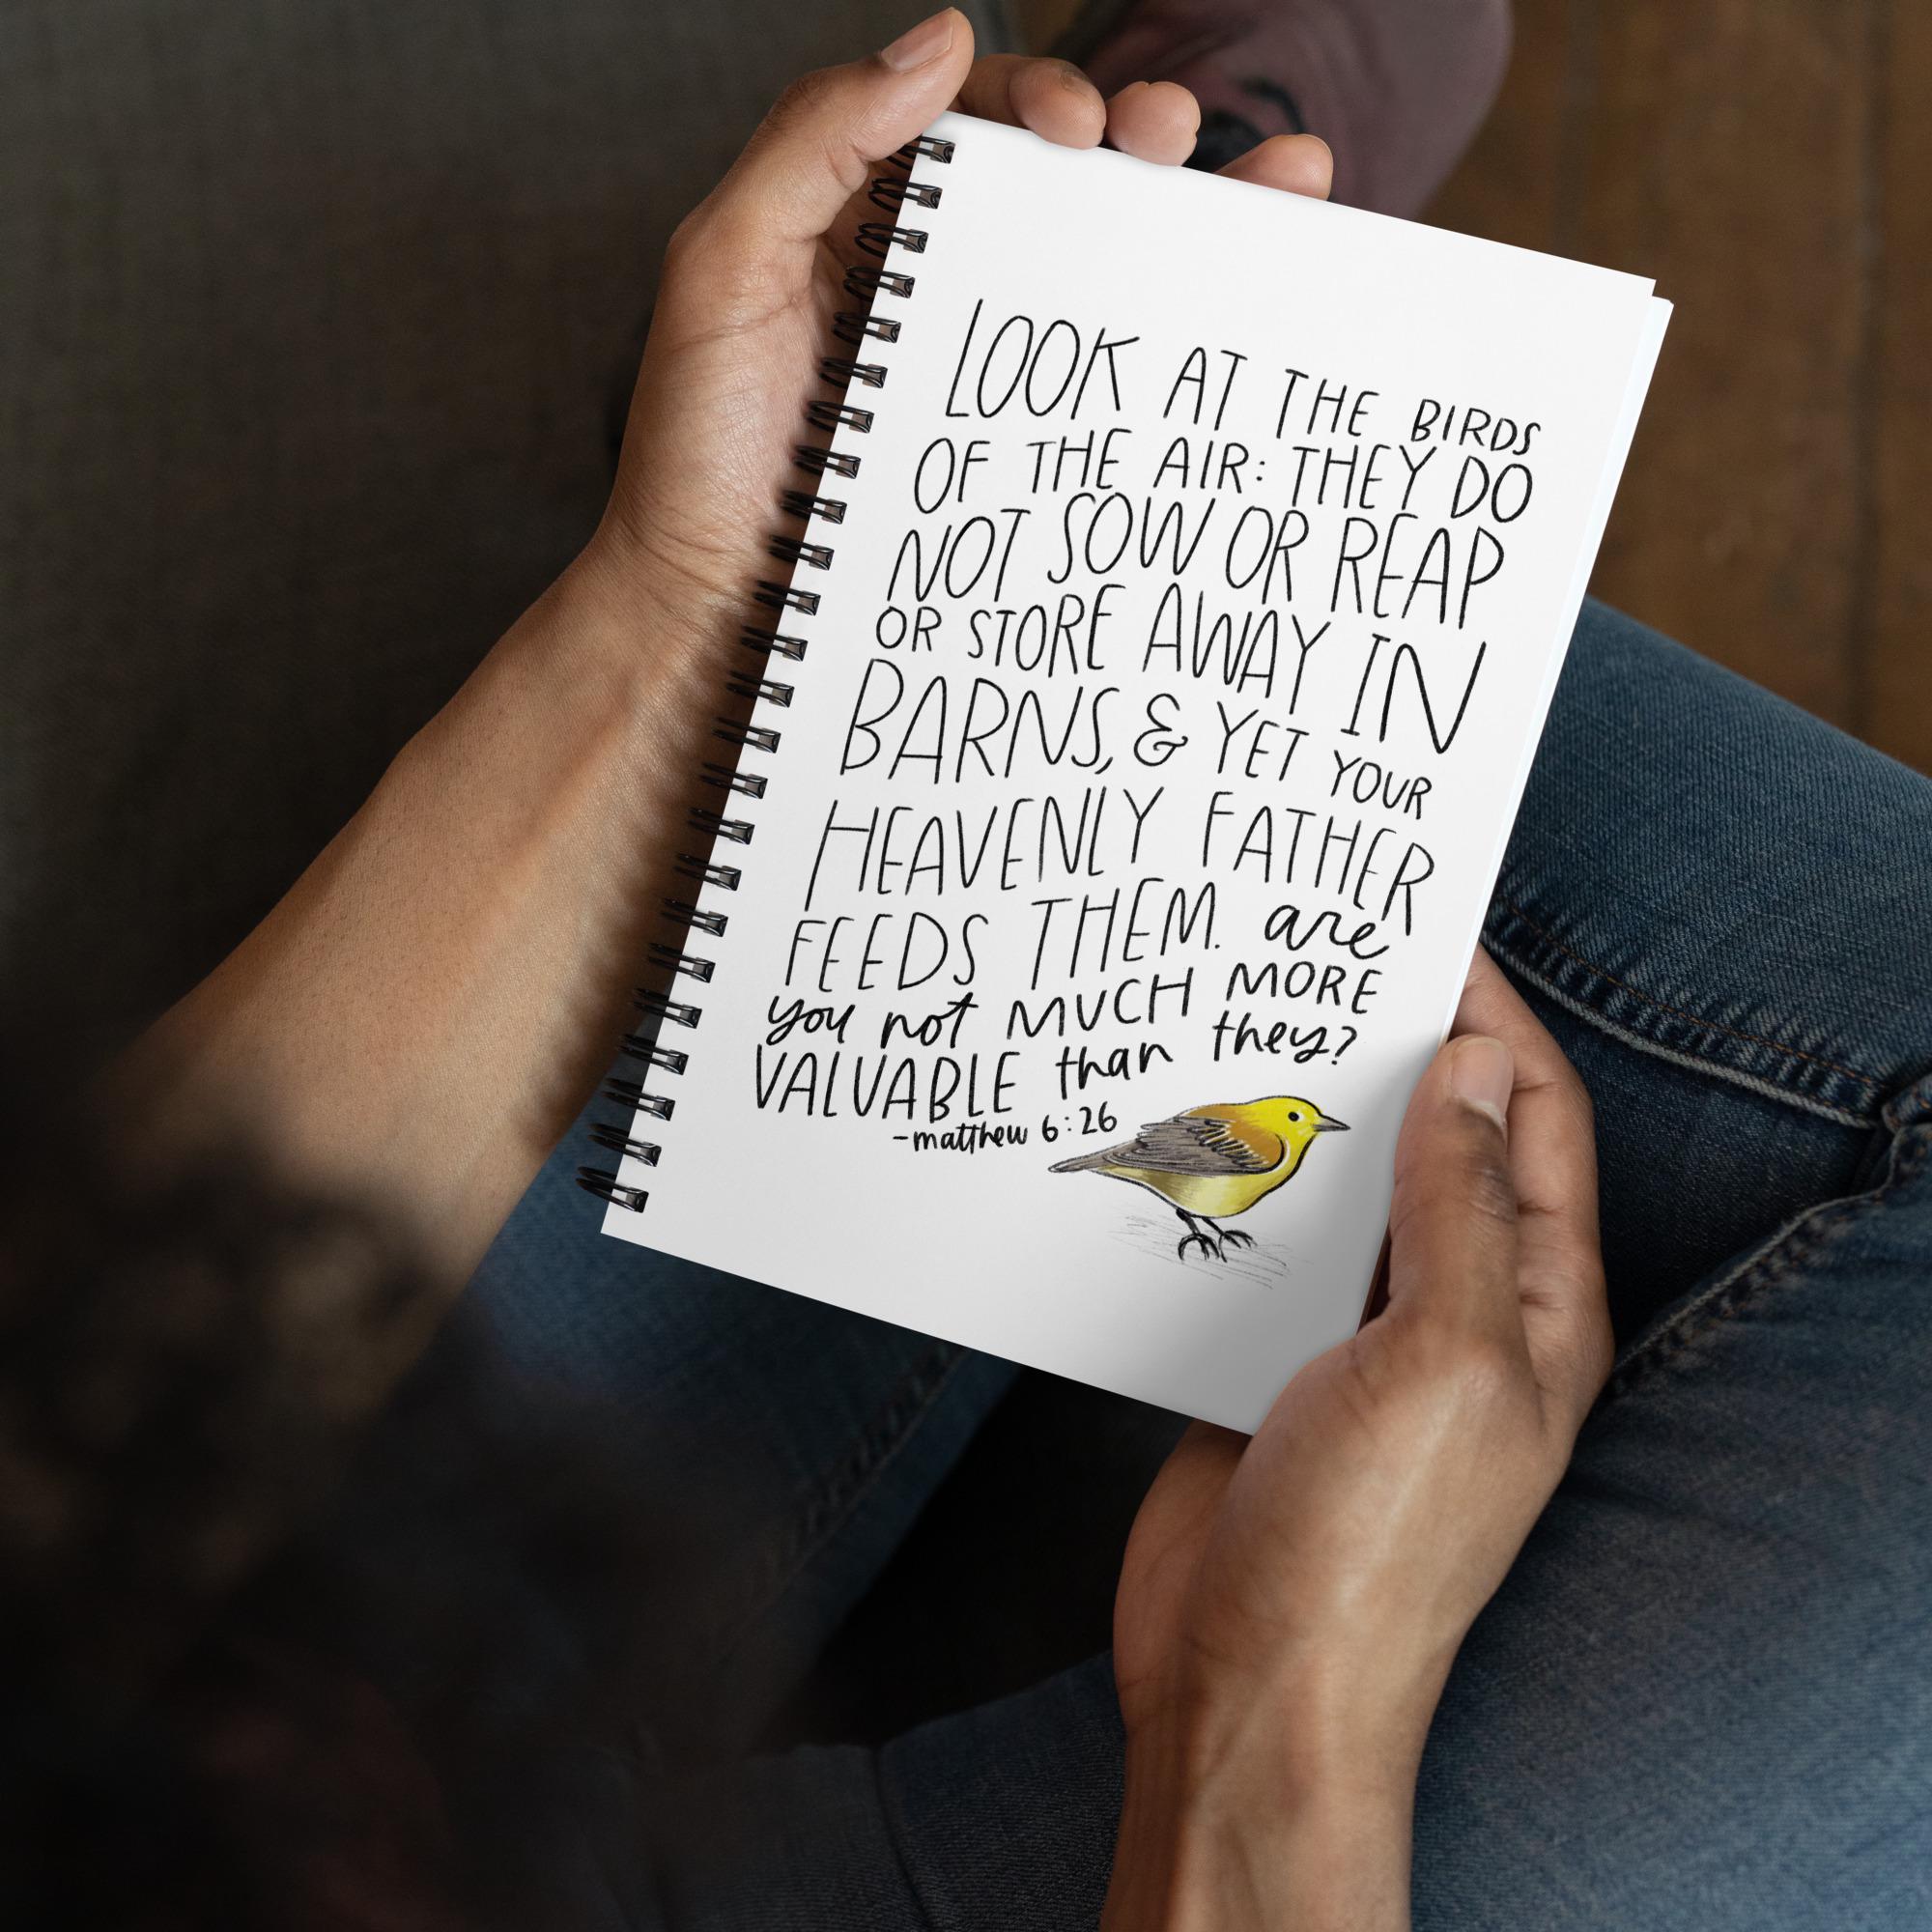 LOOK AT THE BIRDS
OF THE AIR: THEY DO
NOT SOW OR REAP
OR STORE AWAY IN
BARNS, & YET YOUR
HEAVENLY FATHER
FEEDS THEM. are
you not MUCH MORE
VALUABLE than they?
-matthew 6:26